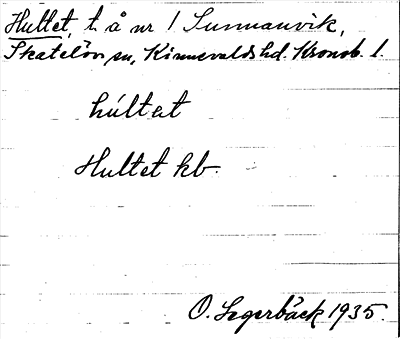 Hultet, t. å nr 1 Sunnanvik,
Skatelöv sn, Kinnevalds hd. Kronob. l.
húltet
Hultet kb.
O. Segerbäck 1935.